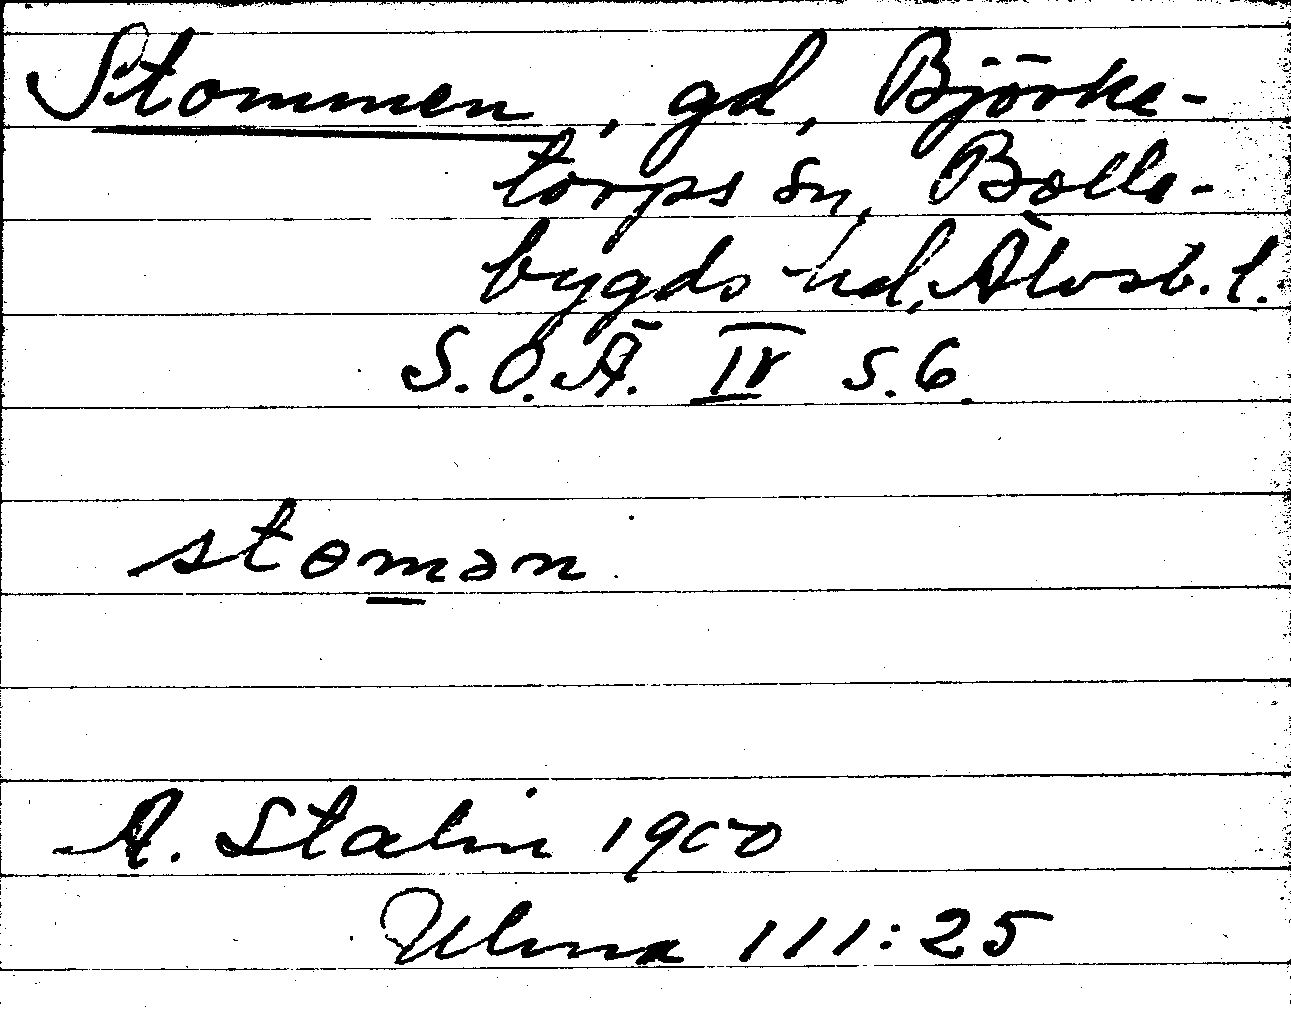 Stommen, gd, Björke-
torps sn, Bolle-
bygds hd, Älvsb. l.
S.O.Ä. IV s. 6.
stomən
A. Stalin 1900
Ulma 111:25